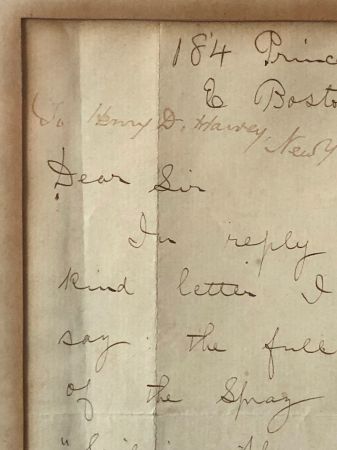 184 Princ
E Bosto
To Henry D. Harvey,
New Y
Dear Sir
In reply
kind letter I
say the full
of the Spray